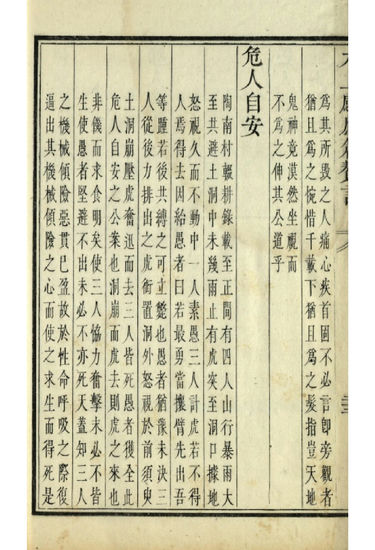 為其所毀之人痛心疾首固不必言即旁觀者
猶且為之惋惜千載下猶且為之髮指豈天地
鬼神竟漠然坐視而
不為之伸其公道乎
危人自安
陶南村輟耕錄載至正間有四人山行暴雨大
至共避土洞中未幾雨止有虎突至洞口據地
怒視久而不動中一人素愚三人計虎若不得
人焉得去因紿愚者曰若最勇當攘臂先出吾
等踵若後共縛之可立斃也愚者猶豫未決三
人從後力排出之虎銜置洞外怒視於前須臾
土洞崩壓虎奮迅而去三人皆死愚者獲全此
危人自安之公案也洞崩而虎去則虎之來也
非饑而求食明矣使三人協力奮擊未必不皆
生使愚者堅避不出未必不亦死天蓋知三人
之機械傾險惡貫已盈故於性命呼吸之際復
逼出其機械傾險之心而使之求生而得死是